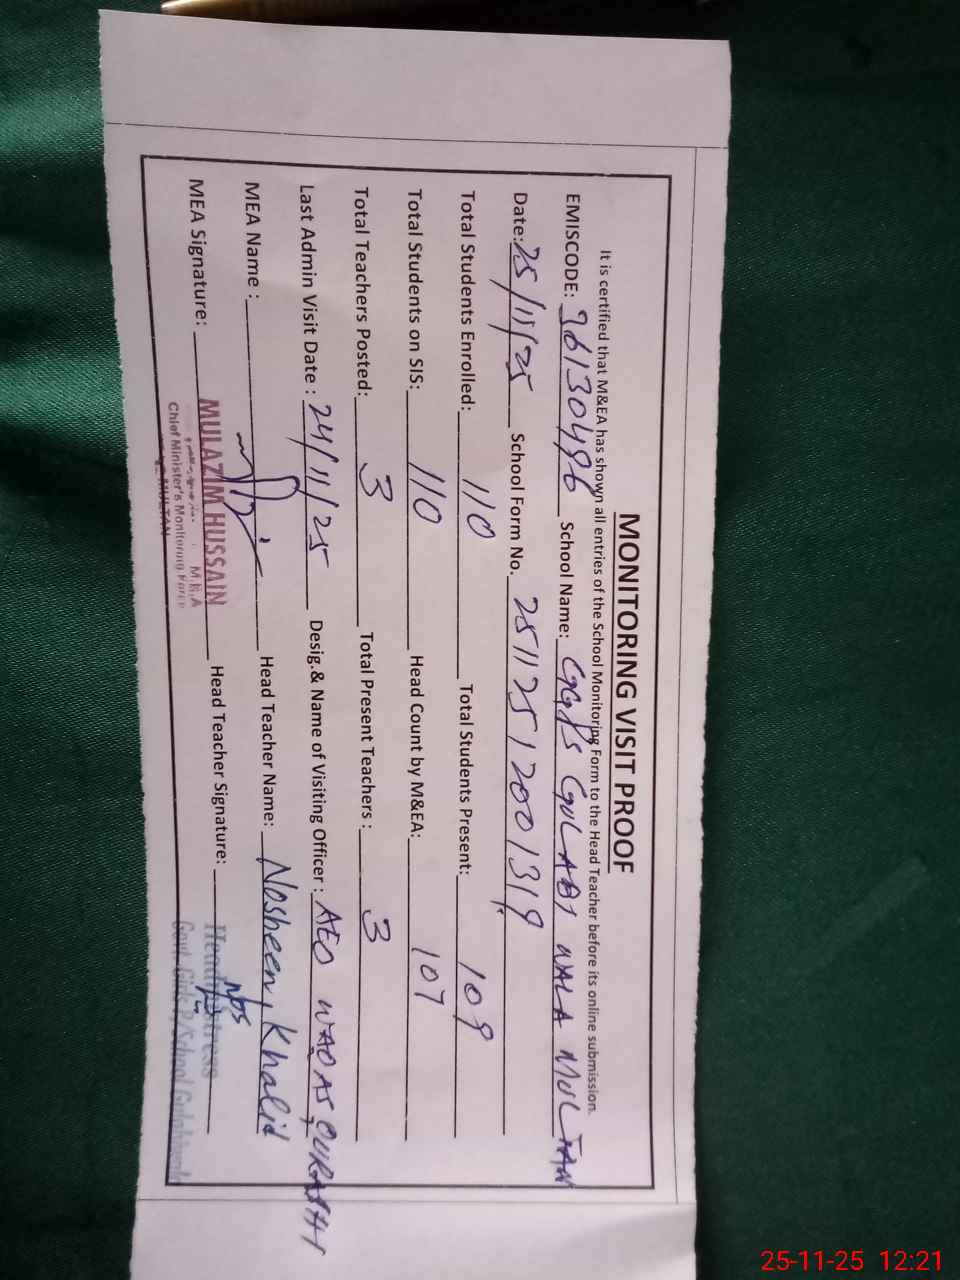 MONITORING VISIT PROOF
It is certified that M&EA has shown all entries of the School Monitoring Form to the Head Teacher before its online submission.
EMISCODE: 36130496 School Name: GGPS GULABI WALA MULTAN
Date: 25/11/25 School Form No. 25112512001319
Total Students Enrolled: 110 Total Students Present: 109
Total Students on SIS: 110 Head Count by M&EA: 107
Total Teachers Posted: 3 Total Present Teachers : 3
Last Admin Visit Date : 24/11/25 Desig.& Name of Visiting Officer : AEO WAQAS QURASHI
MEA Name : Head Teacher Name: Nosheen Khalid
MEA Signature: Head Teacher Signature:
MULAZIM HUSSAIN
M.E.A
Chief Minister's Monitoring Force
MULTAN
Headmistress
Govt. Girls P/School
25-11-25 12:21